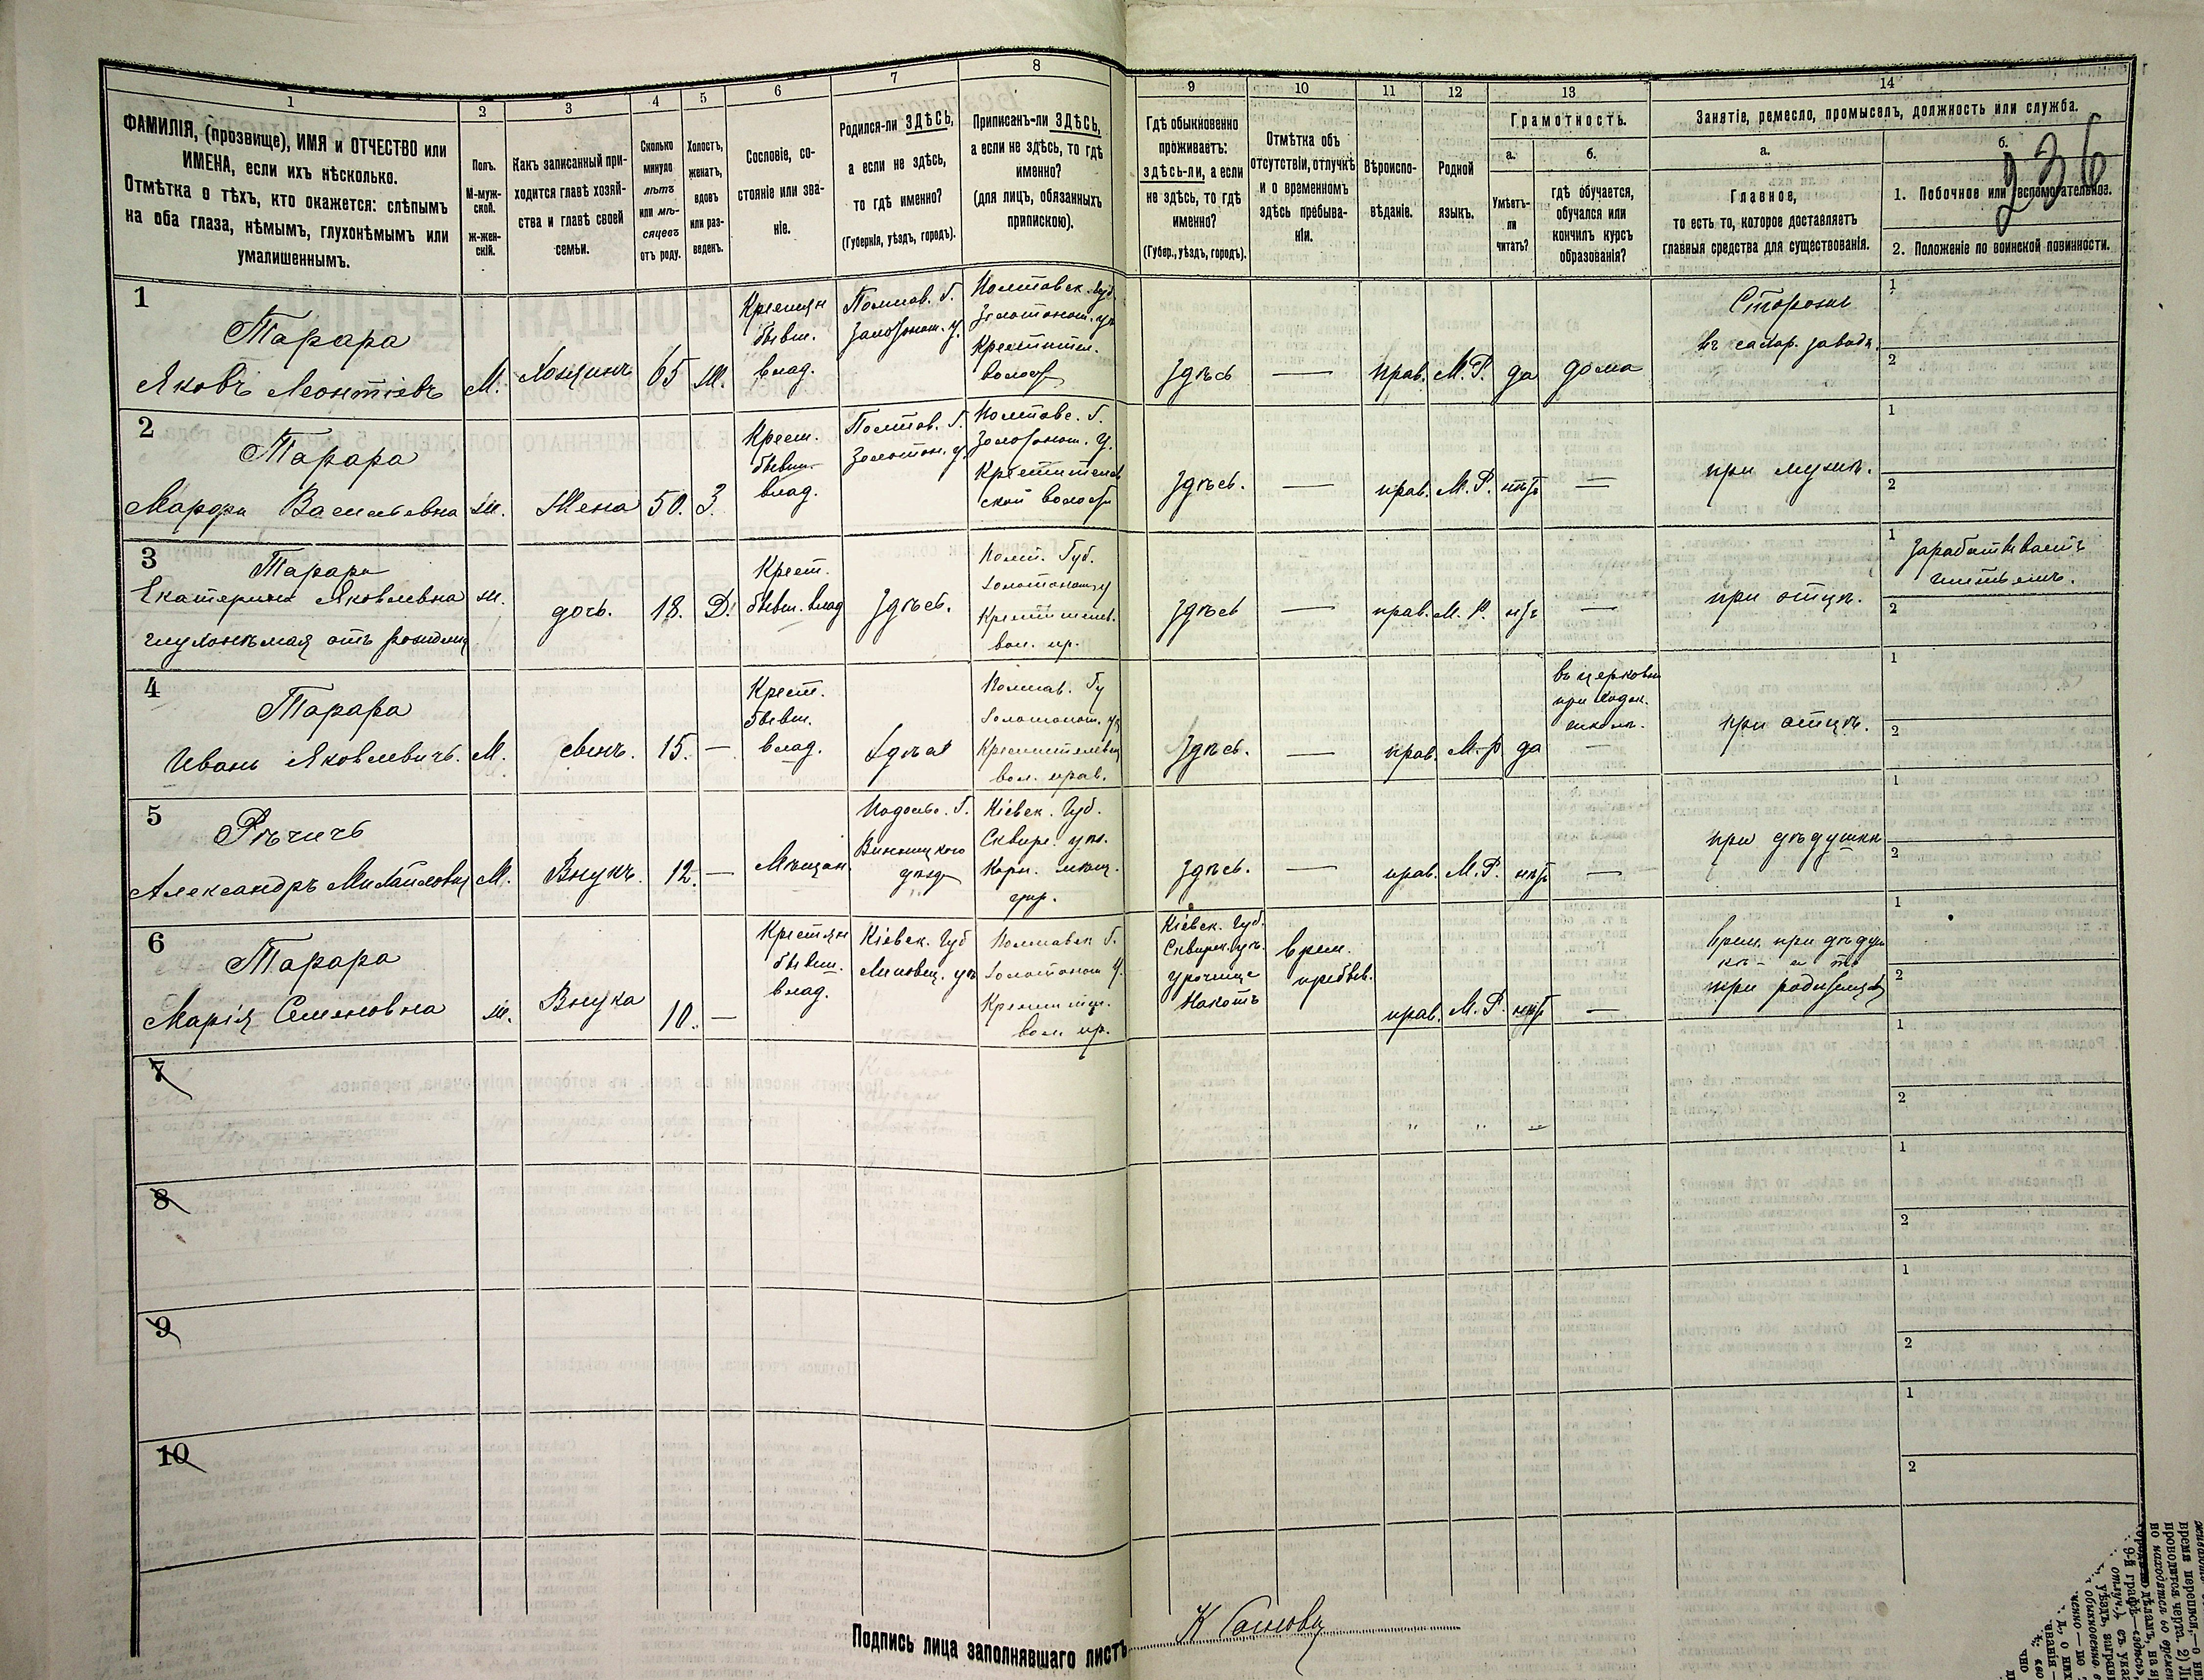 236
1
2
3
4
5
6
7
8
9
10
11
12
13
14
ФАМИЛІЯ, (прозвище), ИМЯ и ОТЧЕСТВО или
ИМЕНА, если ихъ нѣсколько.
Отмѣтка о тѣхъ, кто окажется: слѣпымъ
на оба глаза, нѣмымъ, глухонѣмымъ или
умалишеннымъ.
Полъ.
М-муж-
ской.
Ж-жен-
скій.
Какъ записанный при-
ходится главѣ хозяй-
ства и главѣ своей
семьи.
Сколько
минуло
лѣтъ
или мѣ-
сяцевъ
отъ роду.
Холостъ,
женатъ,
вдовъ
или раз-
веденъ.
Сословіе, со-
стояніе или зва-
ніе.
Родился-ли ЗДѢСЬ,
а если не здѣсь,
то гдѣ именно?
(Губернія, уѣздъ, городъ).
Приписанъ-ли ЗДѢСЬ,
а если не здѣсь, то гдѣ
именно?
(для лицъ, обязанныхъ
припискою).
Гдѣ обыкновенно
проживаетъ:
здѣсь-ли, а если
не здѣсь, то гдѣ
именно?
(Губер., уѣздъ, городъ).
Отмѣтка объ
отсутствіи, отлучкѣ
и о временномъ
здѣсь пребыва-
ніи.
Вѣроиспо-
вѣданіе.
Родной
языкъ.
Грамотность.
а.
Умѣетъ-
ли
читать?
б.
гдѣ обучается,
обучался или
кончилъ курсъ
образованія?
Занятіе, ремесло, промыселъ, должность или служба.
а.
Главное,
то есть то, которое доставляетъ
главныя средства для существованія.
б.
1. Побочное или вспомогательное.
2. Положеніе по воинской повинности.
1
Тарара
Яковъ Леонтіевъ
М.
Хозяинъ
65
Ж.
Крестьян
бывш.
влад.
Полтав. Г.
Золотонош. у.
Полтавск. губ.
Золотонош. у.
Крестител.
волост
Здѣсь
—
прав.
М. Р.
да
дома
Сторожъ
въ сахар. заводѣ.
1
2
2
Тарара
Марфа Васильевна
ж.
Жена
50.
З.
Крест.
бывш.
влад.
Полтав. Г.
Золотон. у.
Полтавс. Г.
Золотонош. У.
Крестителев
ской волости
Здѣсь.
—
прав.
М. Р.
нѣтъ
—
при мужѣ.
1
2
3
Тарара
Екатерина Яковлевна
глухонѣмая отъ рожден
ж.
дочь.
18.
Д.
Крест.
бывш. влад
Здѣсь.
Полт. Губ.
Золотонош у
Крестителев.
вол. пр.
Здѣсь
—
прав.
М. Р.
нѣтъ
—
при отцѣ.
1
Зарабатываетъ
шитьемъ.
2
4
Тарара
Иванъ Яковлевичъ.
М.
сынъ.
15.
—
Крест.
бывш.
влад.
Здѣсь
Полтав. Гу
Золотонош. у
Крестителевск
вол. прав.
Здѣсь.
—
прав.
М. Р
да
въ церковн
приходск.
школѣ.
—
при отцѣ.
1
2
5
Рѣчичъ
Александръ Михайловъ
М.
Внукъ.
12.
—
Мѣщан.
Подольс. Г.
Винницкого
уѣзд
Кіевск. Губ.
Сквирс. уѣз.
упр.
Здѣсь.
—
прав.
М. Р.
нѣтъ
—
при дѣдушкѣ
1
2
6
Тарара
Марія Семеновна
ж.
Внука
10.
—
Крестьян
бывш.
влад.
Кіевск. Губ
Липовец. уѣ
Полтавск Г.
Золотонош У.
Крестител.
вол. пр.
Кіевск. Губ.
Сквирск. уѣз.
урочище
врем.
пребыв.
прав.
М. Р.
нѣтъ
—
врем. при дѣдуш
кѣ - а то
при родителях
1
2
7
1
2
8
1
2
9
1
2
10
1
2
Подпись лица заполнявшаго листъ